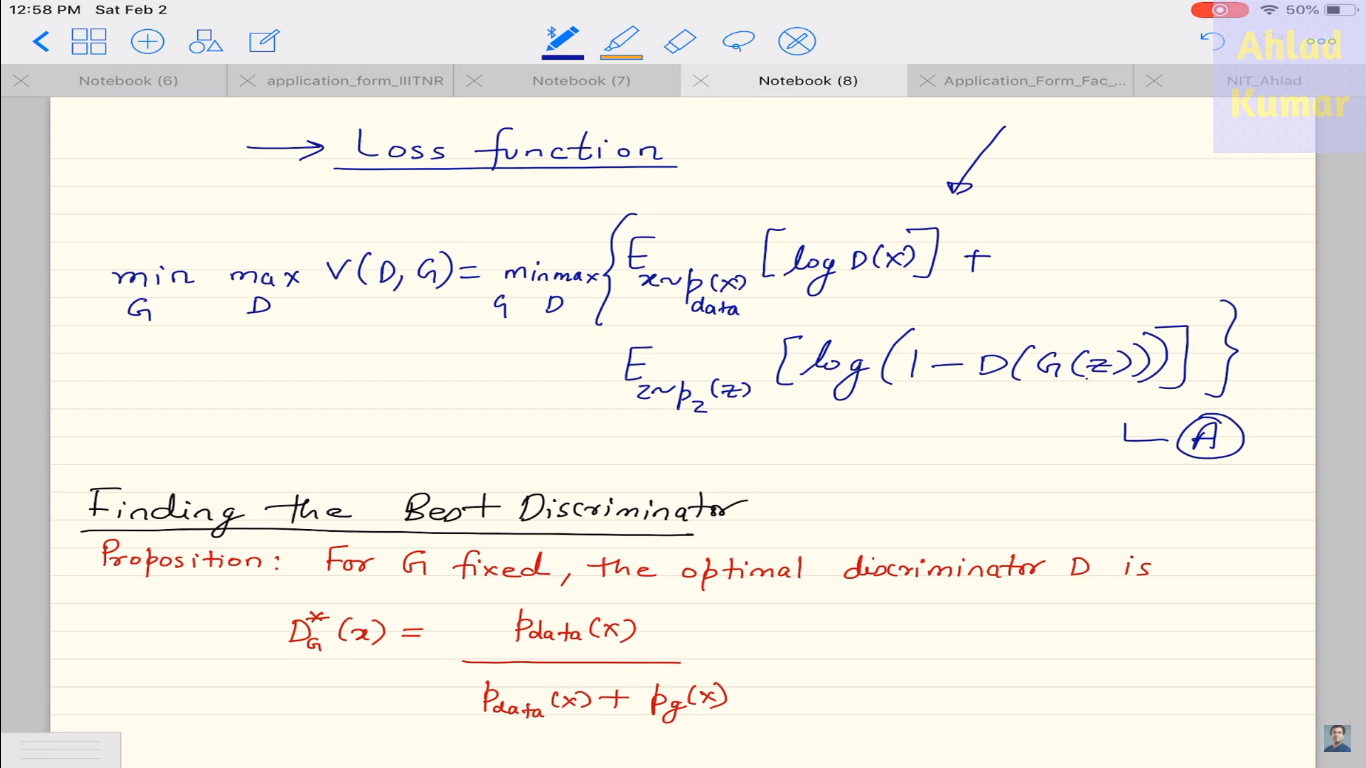 12:58 PM Sat Feb 2
50%
Ahlad
Kumar
Notebook (6)
application_form_IIITNR
Notebook (7)
Notebook (8)
Application_Form_Fac_...
NIT_Ahlad
→ Loss function
min max V(D, G) = min max { E [log D(x)] +
G D G D x~p(x)
data
E [log(1 − D(G(z)))] }
z~p_z(z)
A
Finding the Best Discriminator
Proposition: For G fixed, the optimal discriminator D is
D*_G (x) = p_data(x)
p_data(x) + p_g(x)